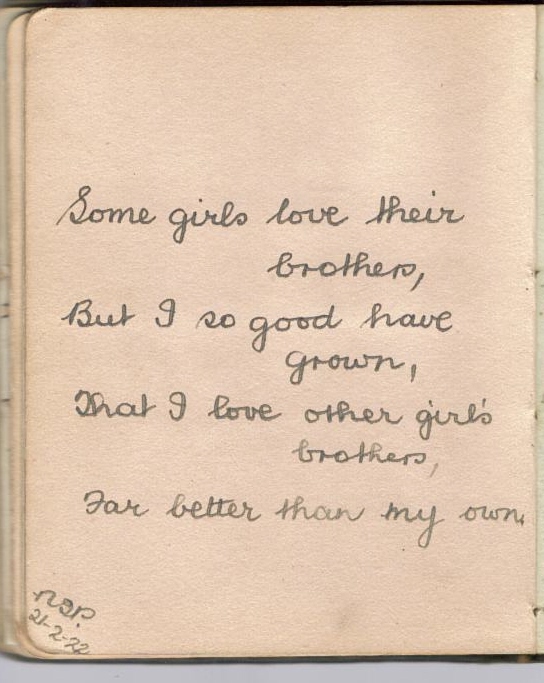 Some girls love their
brothers,
But I so good have
grown,
That I love other girl's
brothers,
Far better than my own.
21-2-22